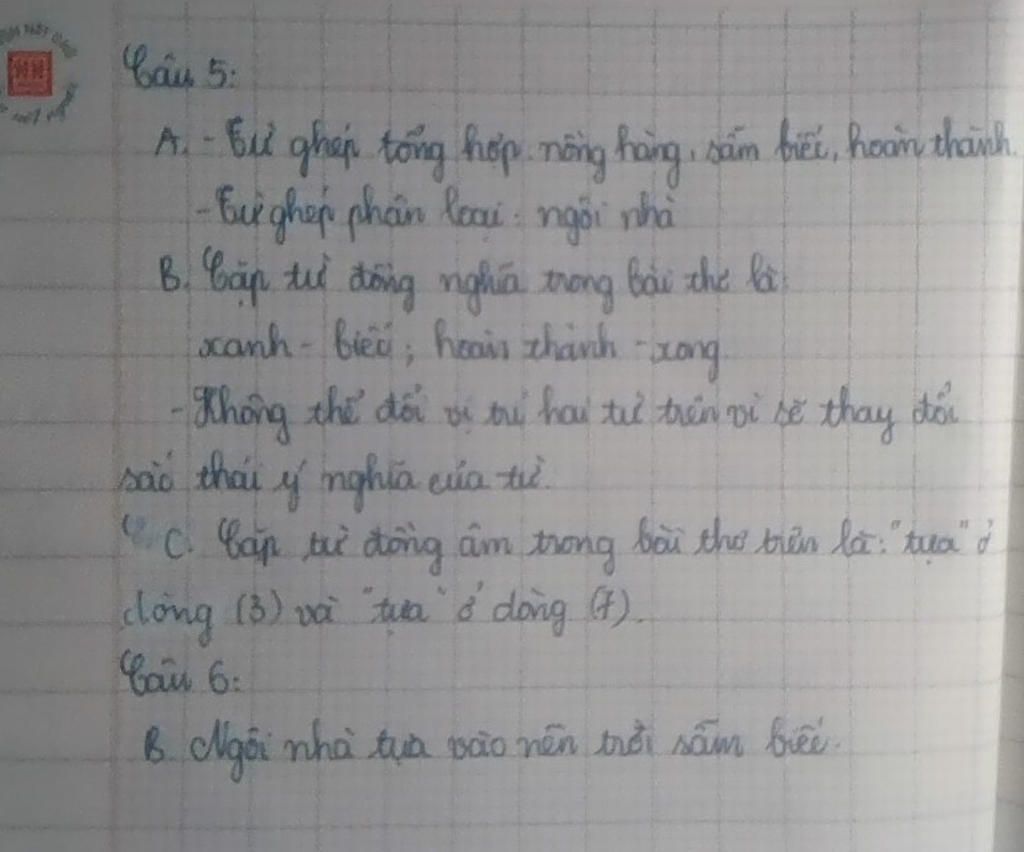 Câu 5:
A. - Từ ghép tổng hợp: nồng hàng, sẫm biếc, hoàn thành.
- Từ ghép phân loại: ngôi nhà
B. Cặp từ đồng nghĩa trong bài thơ là:
xanh - biếc; hoàn thành - xong
- Không thể đổi vị trí hai từ trên vì sẽ thay đổi
sắc thái ý nghĩa của từ.
C. Cặp từ đồng âm trong bài thơ trên là: "tựa" ở
dòng (3) và "tựa" ở dòng (7).
Câu 6:
B. Ngôi nhà tựa vào nền trời sẫm biếc.